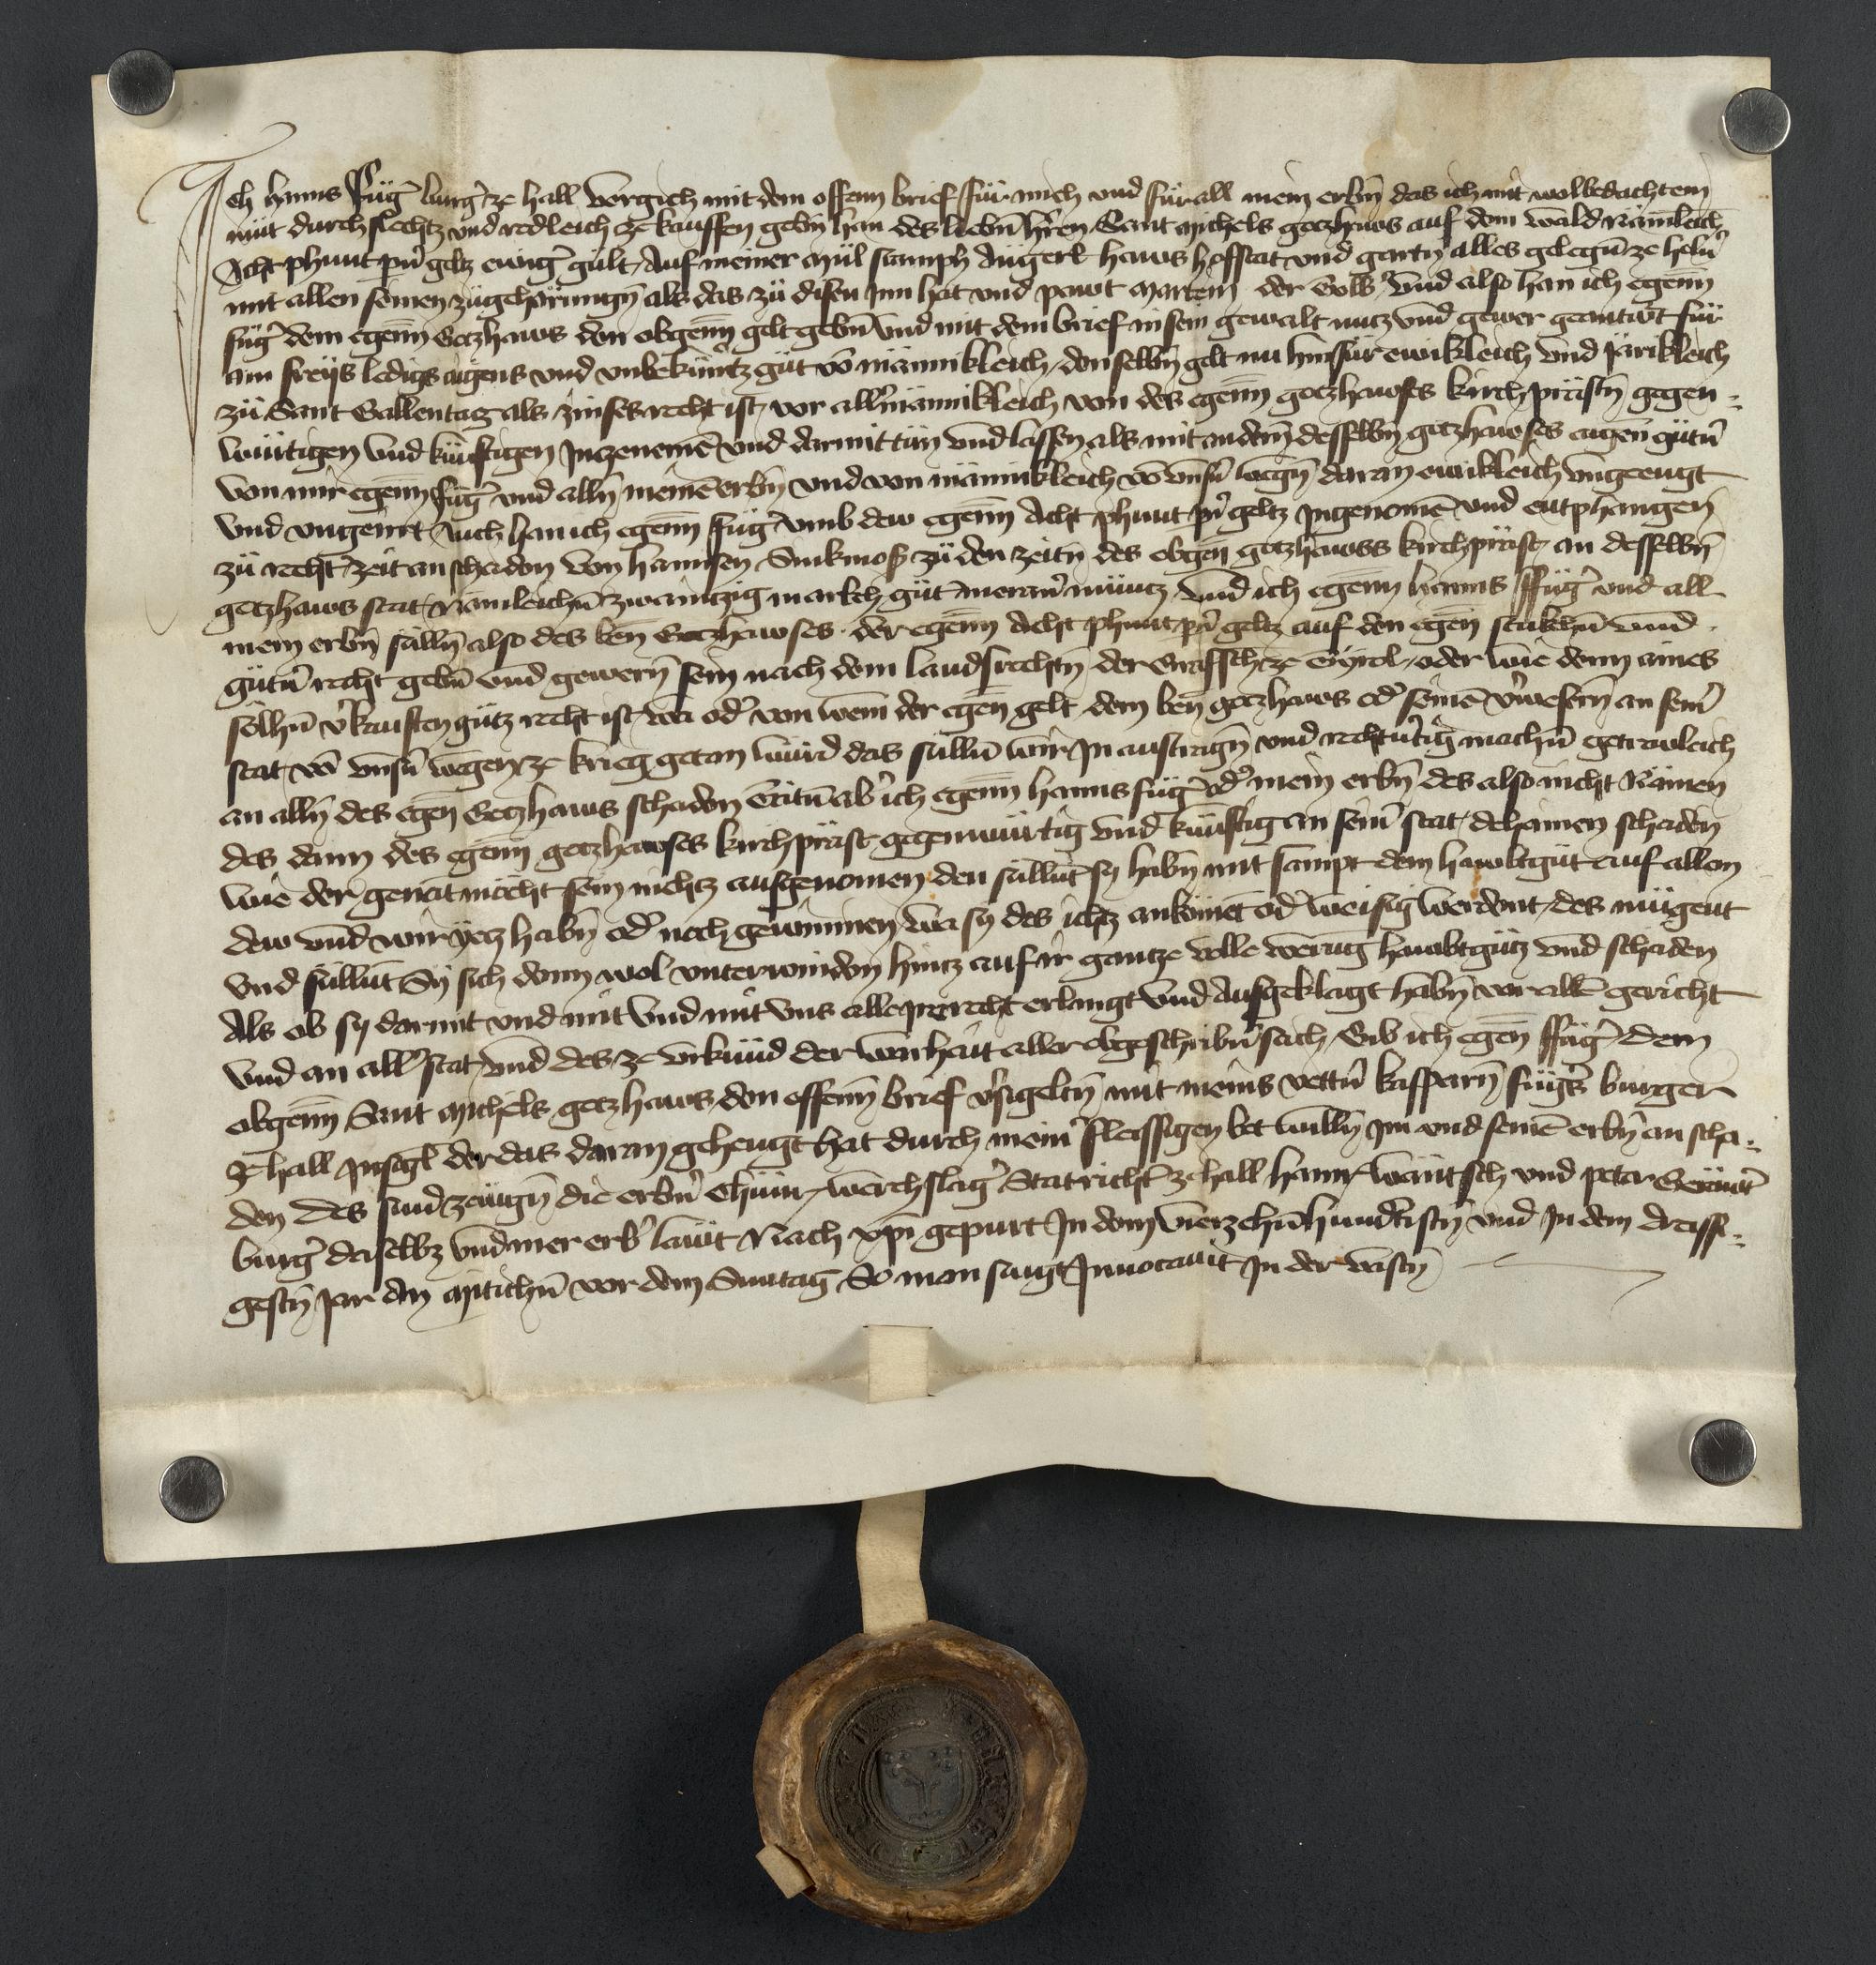 Ich hanns Füg̉ burg̉ ze hall vergich mit dem offenn brief für mich vnd für all mein erbn̄ das ich mit wolbedachtem
müt durchslechtz vnd redleich ze kauffen gebn̄ han des liebn̄ hr̄en Sant Michels gotzhaws auf dem wald Nämleich
Acht phunt pn̉ geltz ewig̉ gült auf meiner Mül stamph Angerl haws hofstat vnd gartn̄ alles gelegn̄ ze
mit allen seinen zügehörūngn̄ als das zü disen Inn hat vnd pawt Martein der vnd also han ich egenn̄
füg̉ dem egenn̄ Gotzhaws den obgenn̄ gelt gebn̄ vnd mit dem brief in sein gewalt nutz vnd gewer geantw̉t für
ain freys ledigs aigens vnd vnbekümtz güt vō männikleich, denselbn̄ gelt nu hinfür ewikleich vnd Järikleich
zü Sant Gallentag als zinses recht ist, vor allm̄ännikleich von des egenn̄ gotzhawses kirchprästn̄ gegen-
würtigen vnd künftigen Inzenemē vnd darmit tün vnd lassen als mit andern̄ desselbn̄ gotzhawses aigen gütn̄
von mir egenn̄ Füg̉ vnd alln̄ meinē erbn̄ vnd von männikleich vō vnsn̉ wegn̄ daran ewikleich vngeengt
vnd vngeirret Auch han ich egenn̄ Füg̉ vmb dew egenn̄ Acht phunt pn̉ geltz Ingenomē vnd entphangen
zü recht̉ zeit an schaden von hannsen zü den zeitn̄ des obgen̄ gotzhawss kirchpräst, an desselbn̄
gotzhaws stat, Nämleichn̄ zwaintzig markch güt meran̉ müntz, vnd ich egenn̄ hanns Füg̉ vnd all
mein erbn̄ sülln̄ also des ben̄ Gotzhawses der egenn̄ Acht phunt pn̉ geltz auf den egen̄ stukchn̄ vnd
gütn̉ recht gebn̄ vnd gewern̄ sein nach dem landsrechtn̄ der Grafsch̉ ze Tyrol, oder wie denn aines
sölhn̄ v̉kauften gütz recht ist, wa od̉ von wem der egen̄ gelt dem ben̄ gotzhaws od̉ seinē v̉wesern̄ an sein̉
stat, vō vnsn̉ wegen ze krieg getan würd das sülln̄ wir In austragn̄ vnd richtūtig machn̄ getrewleich
an alln̄ des egen̄ Gotzhaws schaden Tätn̄ ab̉ ich egenn̄ hanns füg̉ od̉ mein erbn̄ des also nicht Nämen
des dann des egenn̄ gotzhawses kirchpräst gegenwürtig vnd künftig an sein̉ stat, dehainen schaden
wie der genāt möcht sein nichtz ausgenomen den süllnt sy habn̄ mit sampt dem hawbtgüt auf allem
dew vnd wir yetz habn̄ od̉ noch gewinnen wa sy des ichtz ankömet od̉ weisig werdent, des mügent
vnd süllnt Sy sich denn wol vnterwinden hintz auf ir gantze volle werūg hawbtgütz vnd schaden
Als ob sy darmit vnd mit vnd mit vns allew recht erlangt vnd Ausgeklagt habn̄ vor allē gericht
vnd an all̉ stat, vnd des ze vrkünd der warhait aller obgeschribn̉ sach, Gib ich egen̄ Füg̉ dem
obgenn̄ Sant Michels gotzhaws, den offenn̄ brief v̉sigeltn̄ mit meins vettn̉ kasparn̄ fügs̉ burger
ze hall Insigl̄ der das daran gehengt hat durch mein̉ fleissigen bet willn̄ Im vnd seinē erbn̄ an scha-
den des sind zeugn̄ die erbn̉ Chünr̉ werchslag̉ Statricht̉ ze hall hainr̉ wäntsch vnd peter
burg̉ daselbz vnd mer erb̉ läut Nach xp̄i gepurt In dem vierzehn̄hundt̉istn̄ vnd In dem dreissi-
gistn̄ Jar An Mitichn̄ vor dem Suntag So man singt Inuocauit In der vastn̄